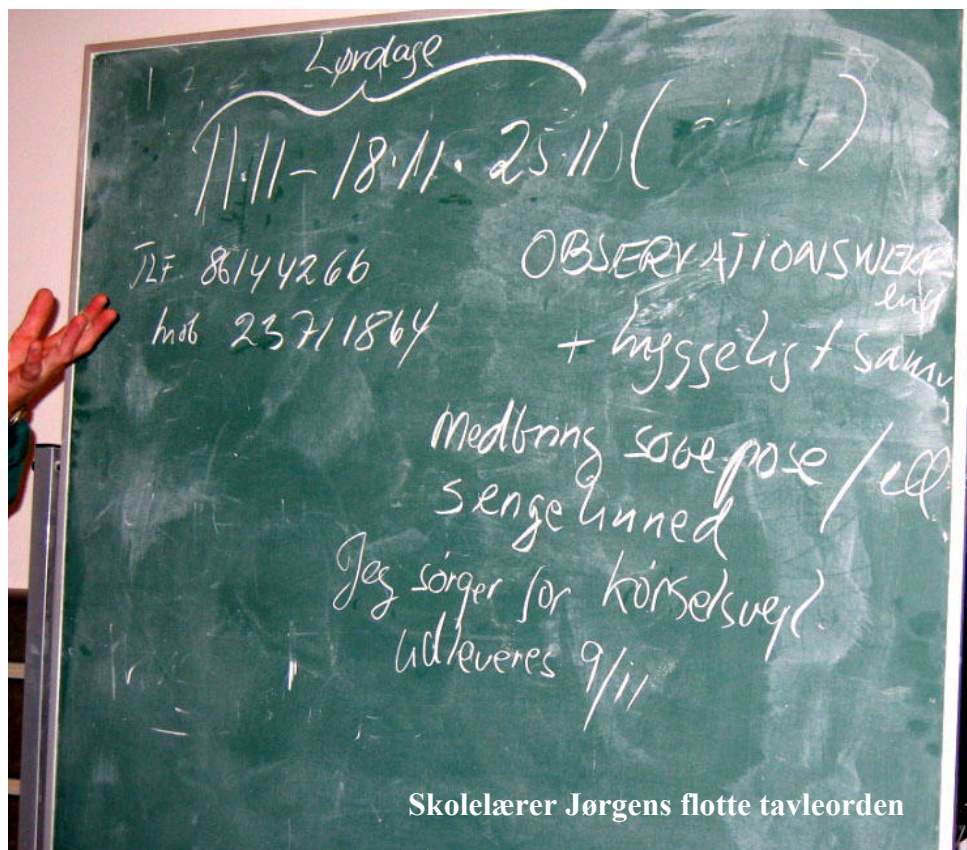 Lørdage
11·11 - 18·11· 25·11 ( )
TLF. 86144266
mob 23711864
OBSERVATIONSWEEK
end
+ hyggeligt samv
Medbring sovepose / ell.
sengelinned
Jeg sørger for kørselsvejl.
udleveres 9/11
Skolelærer Jørgens flotte tavleorden